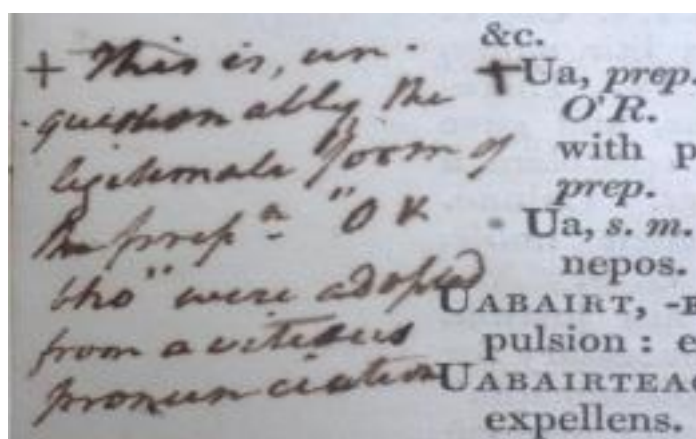 + This is, un-
questionally the
legitimate form of
the prepn "O &
bho" were adopted
from a vitious
pronunciation
&c.
+Ua, prep.
O'R.
with p
prep.
Ua, s. m.
nepos.
UABAIRT, -E
pulsion : e
UABAIRTEAC
expellens.